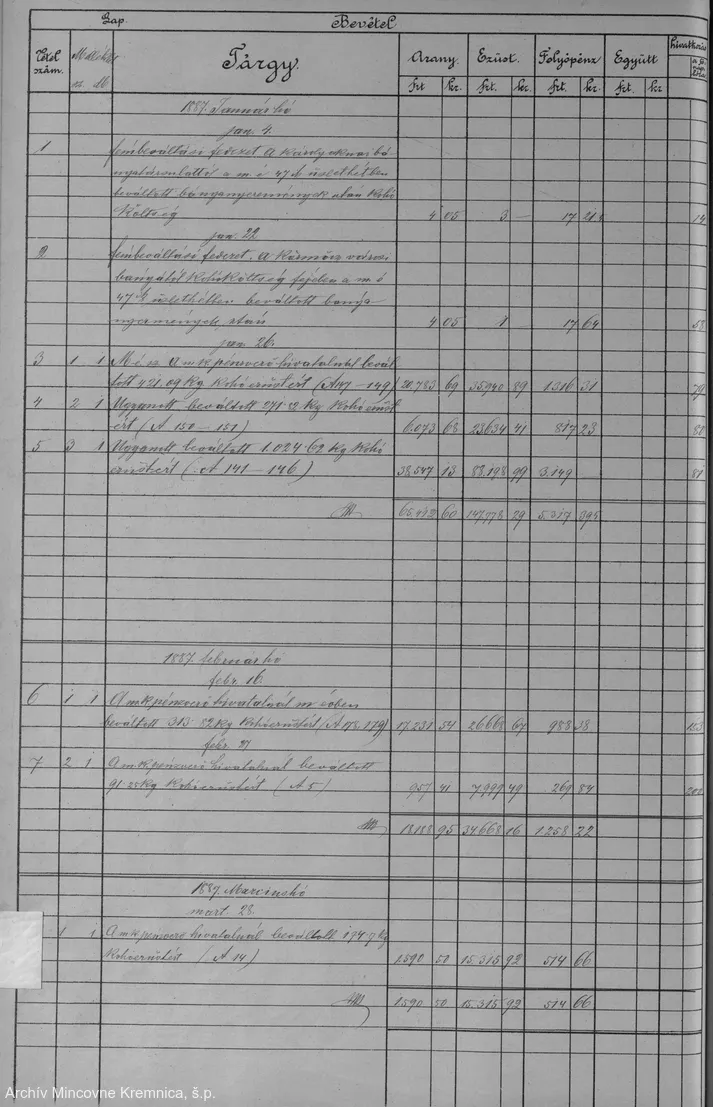 Lap. Bevétel
Tétel szám. Melléklet sz. db Tárgy. Arany. frt kr. Ezüst. frt. kr. Folyópénz frt. kr. Együtt frt. kr. hivatkozás
1887. Január hó
jan. 4.
1 fémbeváltási fedezet. A
a m. é 47ik üzlethétben
beváltott bányanyeremények után kohó
költség 4 05 3 — 17 14
jan. 22
2 fémbeváltási fedezet. A Körmöcz városi
bányától kohóköltség fejében a m. é
47ik üzlethétben beváltott bánya
nyeremények után 4 05 1 17 64 58
jan. 26.
3 1 1 A m k pénzverő hivatalnál bevál
tott 421.09 kg kohóezüstért (A 147 – 149) 20.783 69 35.940 89 1.316 31 79
4 2 1 Ugyanott beváltott 271.82 kg kohó ezüst
ért (A 150 – 151) 6.073 68 23.634 41 817 23 80
5 3 1 Ugyanott beváltott 1.024.69 kg kohó
ezüstért (A 141 – 146) 38.547 13 88.198 99 3.149 — 81
60 147.778 29 5.317
1887. február hó
febr. 16.
6 1 1 A m k pénzverő hivatalnál m. évben
beváltott 313.82 kg kohóezüstért (A 178. 179) 17.231 54 26668 67 988 38 153
febr. 27
7 2 1 A m k pénzverő hivatalnál beváltott
91.25 kg kohóezüstért (A 5) 957 41 7.999 49 269 84
18.188 95 34.668 16 1.258 22
1887. Marcius hó
mart. 28.
1 1 A m k pénzverő hivatalnál beváltott 174.7 kg
kohóezüstért (A 14) 1.590 50 15.315 92 514 66
1.590 50 15.315 92 514 66
Archív Mincovne Kremnica, š.p.